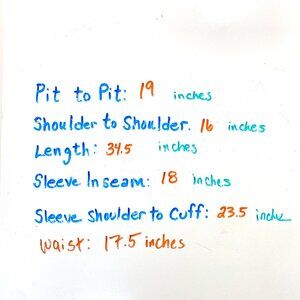 Pit to Pit: 19 inches
Shoulder to Shoulder. 16 inches
Length: 34.5 inches
Sleeve Inseam: 18 inches
Sleeve Shoulder to Cuff: 23.5 inches
Waist: 17.5 inches